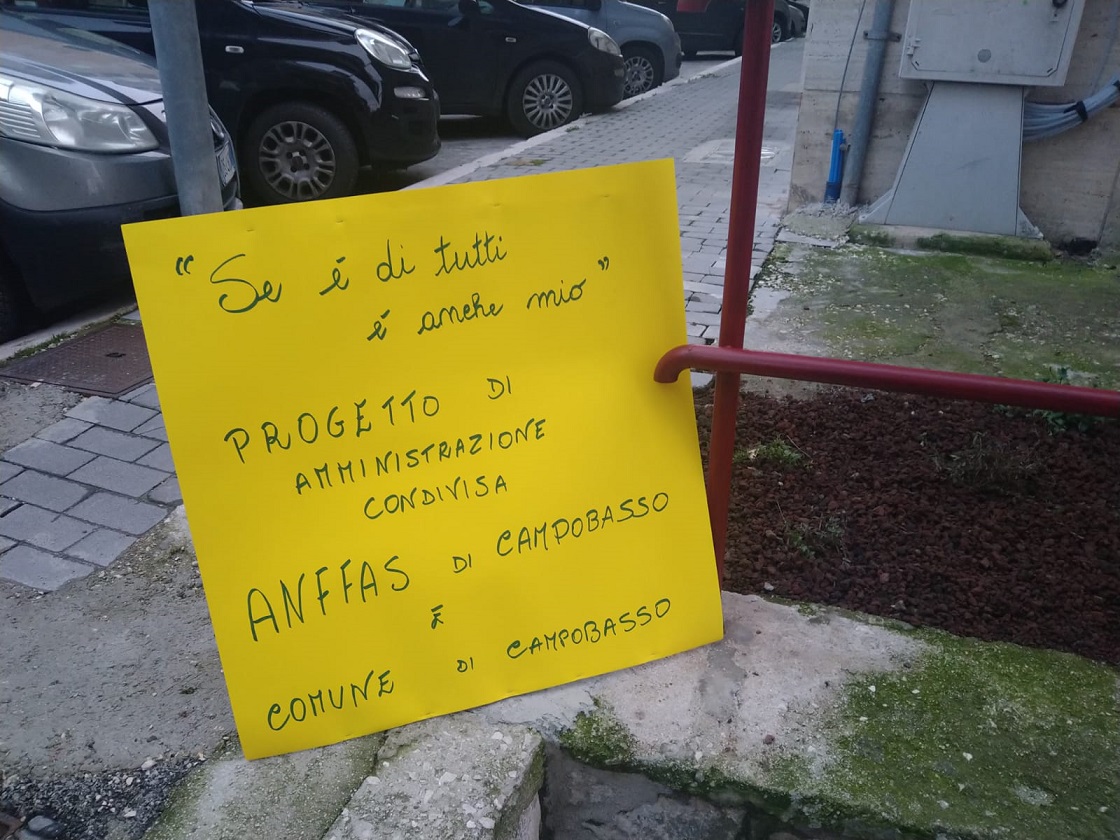 “ Se é di tutti
é anche mio ”
PROGETTO DI
AMMINISTRAZIONE
CONDIVISA
ANFFAS DI CAMPOBASSO
E
COMUNE DI CAMPOBASSO